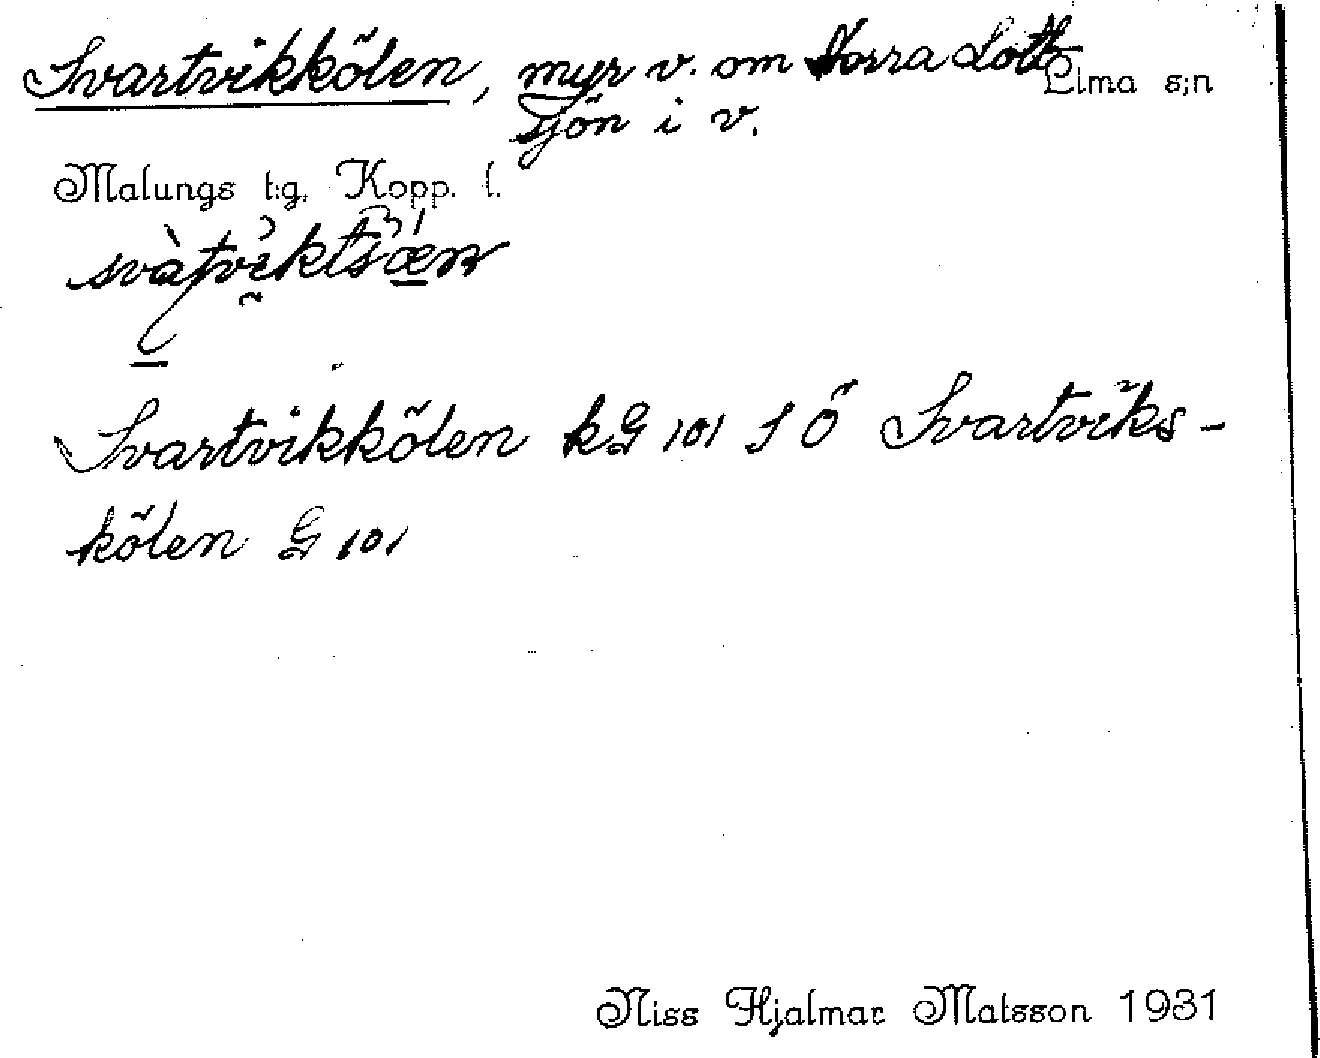 Svartvikkölen, myr v. om Norra Lott
sjön i v.
Lima s;n
Malungs t:g. Kopp. l.
Svartvikkölen kG 101 SÖ Svartviks-
kölen G 101
Niss Hjalmar Matsson 1931